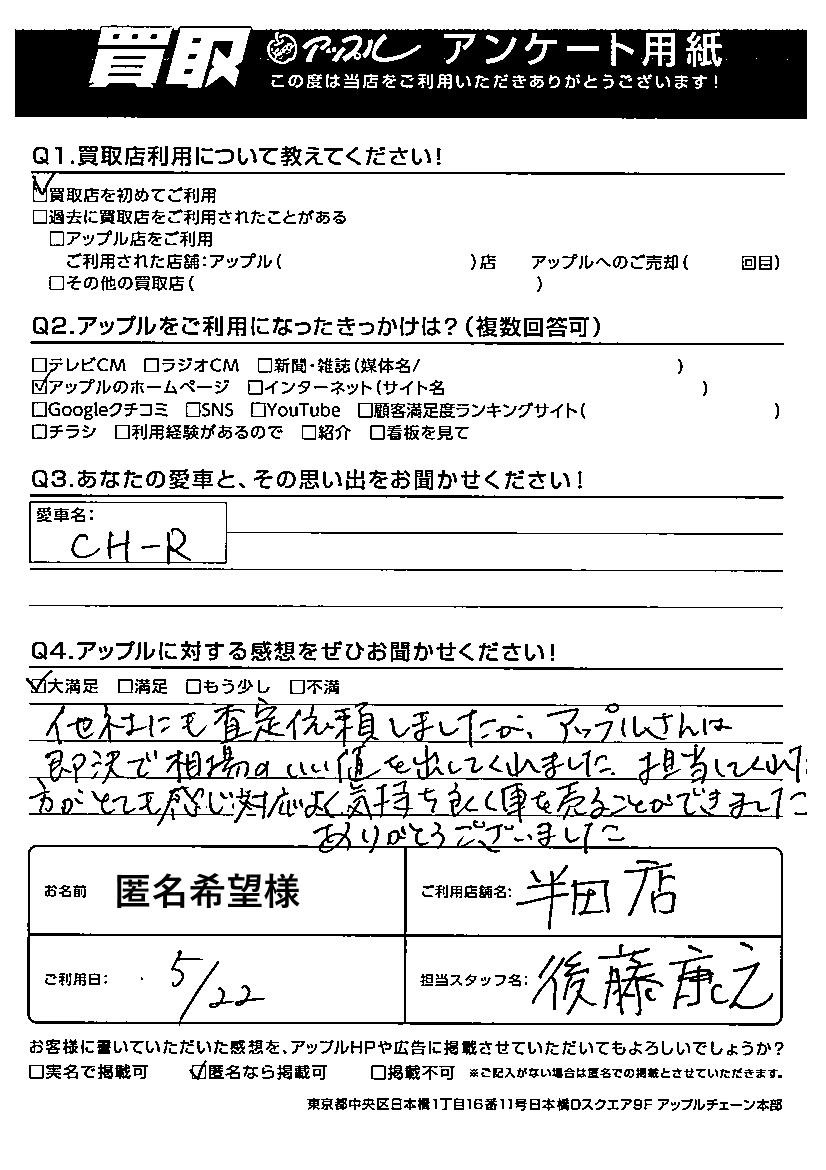 買取 アップル アンケート用紙
この度は当店をご利用いただきありがとうございます!
Q1.買取店利用について教えてください!
☑買取店を初めてご利用
□過去に買取店をご利用されたことがある
□アップル店をご利用
ご利用された店舗:アップル( )店 アップルへのご売却( 回目)
□その他の買取店( )
Q2.アップルをご利用になったきっかけは?(複数回答可)
□テレビCM □ラジオCM □新聞・雑誌(媒体名/ )
☑アップルのホームページ □インターネット(サイト名 )
□Googleクチコミ □SNS □YouTube □顧客満足度ランキングサイト( )
□チラシ □利用経験があるので □紹介 □看板を見て
Q3.あなたの愛車と、その思い出をお聞かせください!
愛車名:
CH-R
Q4.アップルに対する感想をぜひお聞かせください!
☑大満足 □満足 □もう少し □不満
他社にも査定依頼しましたが、アップルさんは
即決で相場のいい値を出してくれました。担当してくれた
方がとても感じ対応よく気持ち良く車を売ることができました
ありがとうございました
お名前 匿名希望様 ご利用店舗名: 半田店
ご利用日: 5/22 担当スタッフ名: 後藤康之
お客様に書いていただいた感想を、アップルHPや広告に掲載させていただいてもよろしいでしょうか?
□実名で掲載可 ☑匿名なら掲載可 □掲載不可 ※ご記入がない場合は匿名での掲載とさせていただきます。
東京都中央区日本橋1丁目16番11号日本橋Dスクエア9F アップルチェーン本部